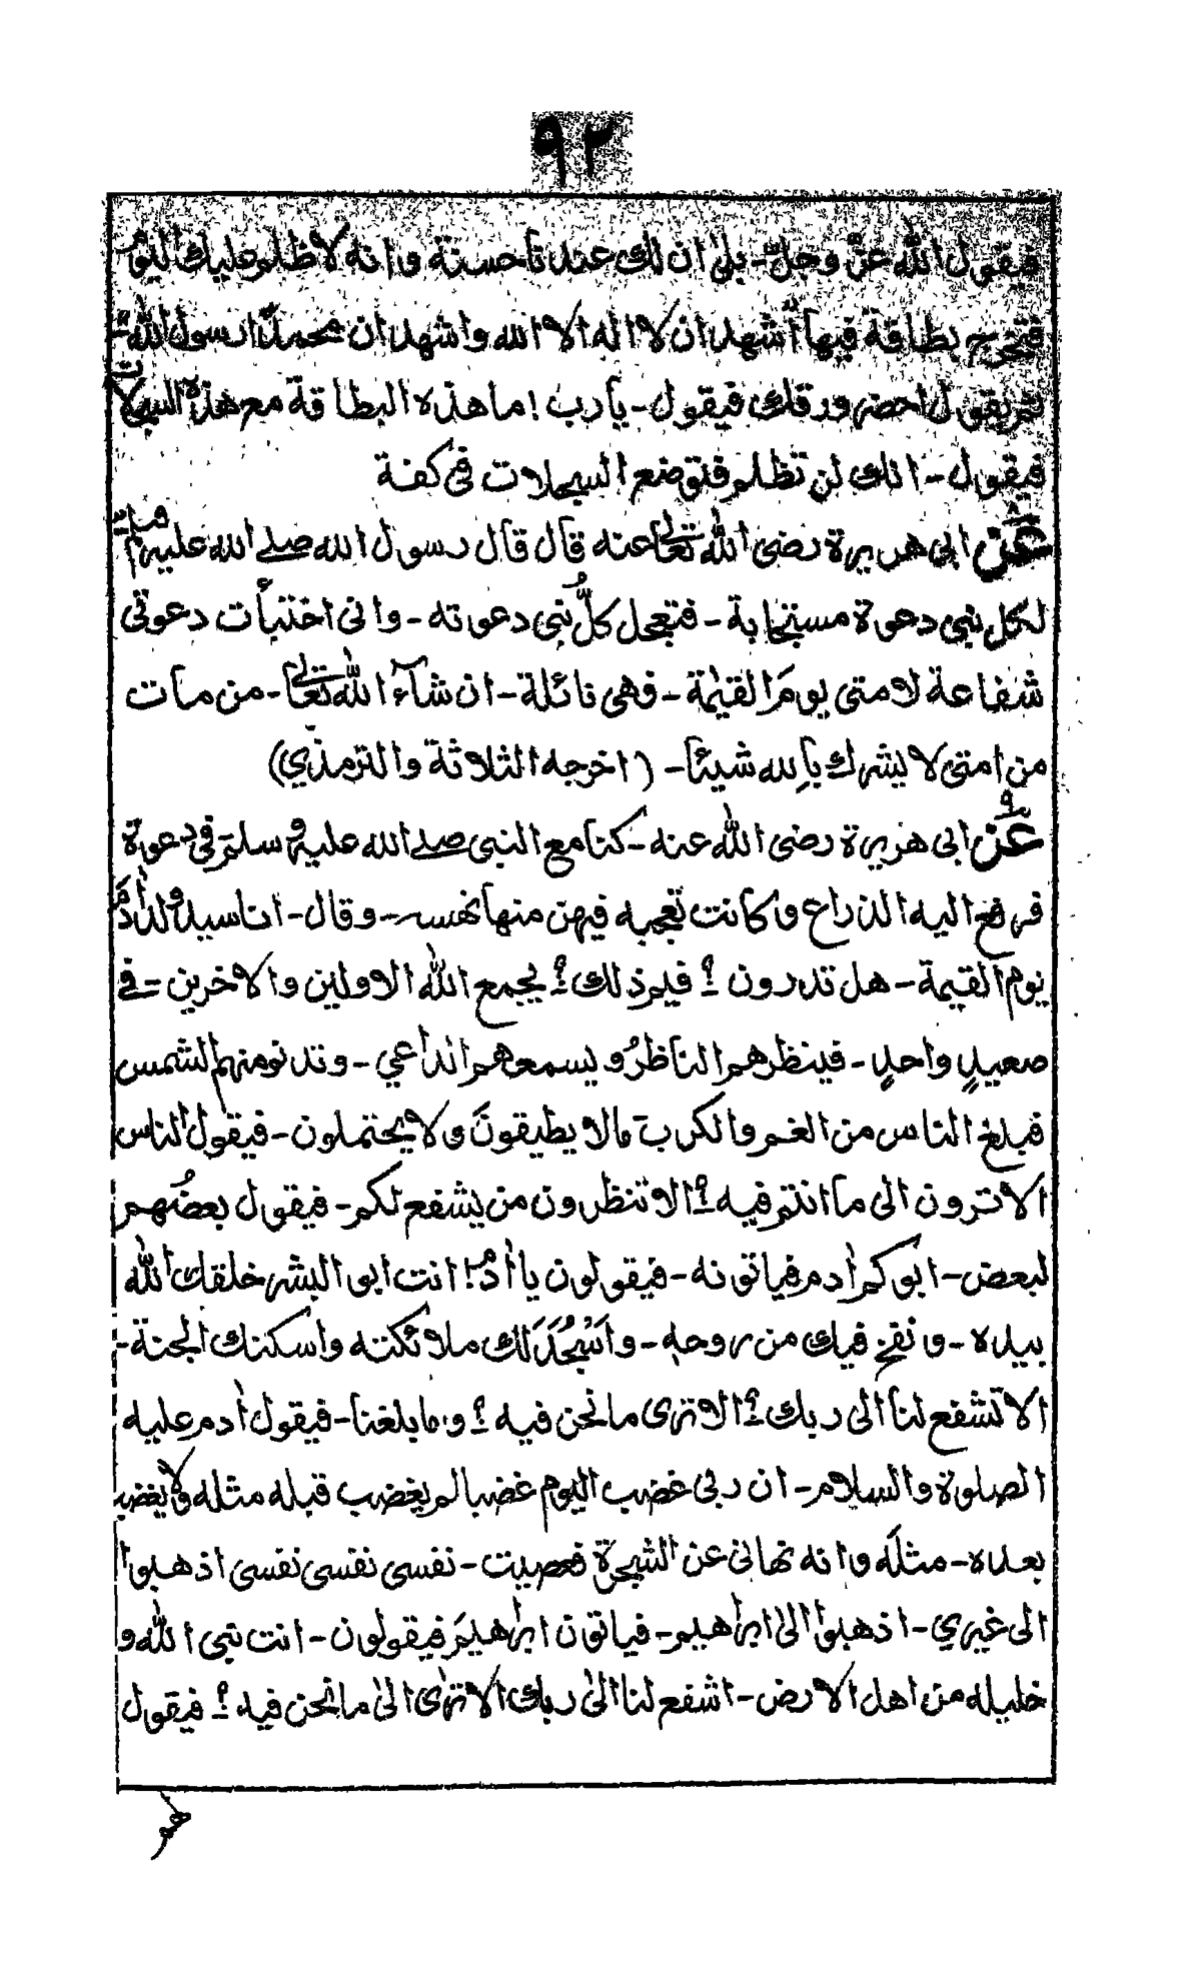 ٩٢
فيقول الله عزّ وجلّ - بلىٰ ان لك عندنا حسنة وانه لا ظلم عليك اليوم
فتخرج بطاقة فيها أشهد ان لا اله الا الله واشهد ان محمدًا رسول الله -
ثم يقول احضر وزنك فيقول - يارب! ما هذه البطاقة مع هذه السجلات
فيقول - انك لن تظلم فتوضع السجلات في كفة
عن ابى هريرة رضى الله تعالى عنه قال قال رسول الله صلے الله عليه وسلم
لكل نبى دعوة مستجابة - فتعجل كلُّ نبى دعوته - وانى اختبأت دعوتى
شفاعة لامتى يومَ القيٰمة - فهى نائلة - ان شآء الله تعالىٰ - من مات
من امتى لا يشرك بالله شيئا - (اخرجه الثلاثة والترمذي)
عن ابى هريرة رضى الله عنه - كنا مع النبى صلے الله عليه وسلم فى دعوة
فرفع اليه الذراع وكانت تعجبه فنهس منها نهسة - وقال - انا سيد ولد اٰدم
يوم القيمة - هل تدرون ؟ فيم ذلك ؟ يجمع الله الاولين والاخرين - فے
صعيدٍ واحدٍ - فينظرهم الناظرُ ويسمعهم الداعي - وتدنو منهم الشمس
فبلغ الناس من الغم والكرب مالا يطيقونَ ولا يحتملون - فيقول الناس
الا ترون الى ما انتم فيه ؟ الا تنظرون من يشفع لكم - فيقول بعضُهم
لبعض - ابوكم اٰدم فياتونه - فيقولون يا اٰدم! انت ابو البشر خلقك الله
بيده - ونفخ فيك من روحه - واَسْجُدَ لك ملائكته واسكنك الجنة -
الا تشفع لنا الى ربك ؟ الا ترى ما نحن فيه ؟ وما بلغنا - فيقول اٰدم عليه
الصلوة والسلام - ان ربى غضب اليوم غضبا لم يغضب قبله مثله ولا يغضب
بعده - مثله وانه نهانى عن الشجرة فعصيت - نفسى نفسى نفسى اذهبوا
الى غيري - اذهبوا الىٰ ابراهيم - فياتون ابراهيمَ فيقولون - انت نبى الله و
خليله من اهل الارض - اشفع لنا الىٰ ربك الا ترىٰ الىٰ ما نحن فيه ؟ فيقول